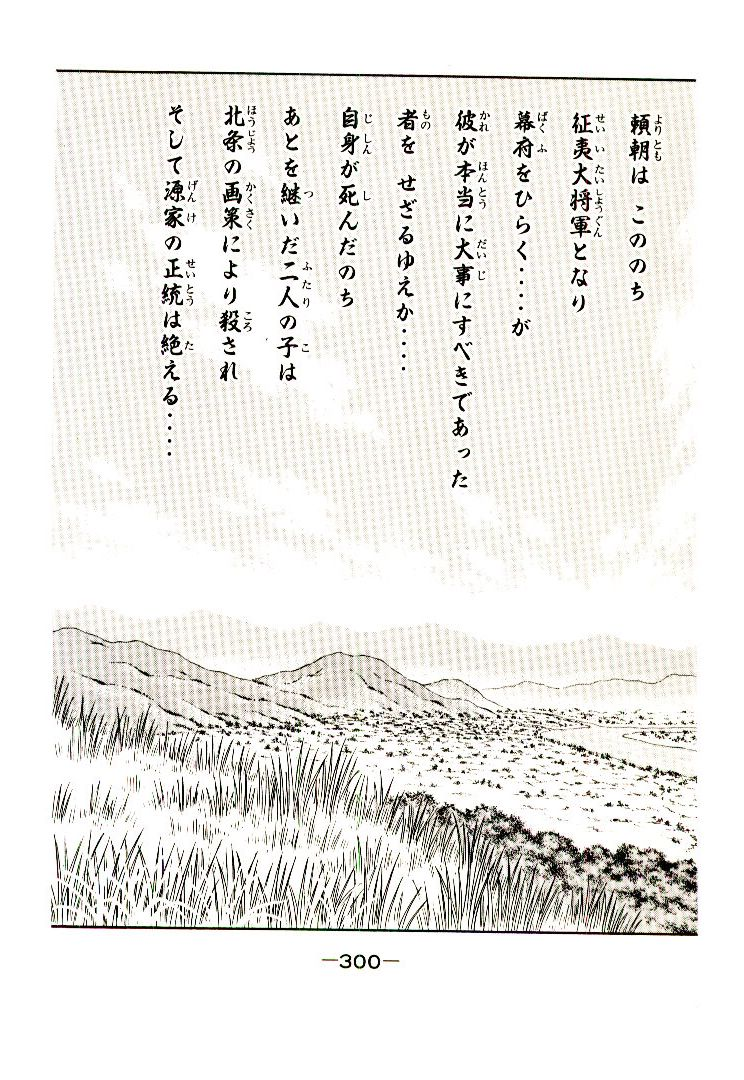 頼朝は このののち
征夷大将軍となり
幕府をひらく・・・・が
彼が本当に大事にすべきであった
者を せざるゆえか・・・・
自身が死んだのち
あとを継いだ二人の子は
北条の画策により殺され
そして源家の正統は絶える・・・・
—300—